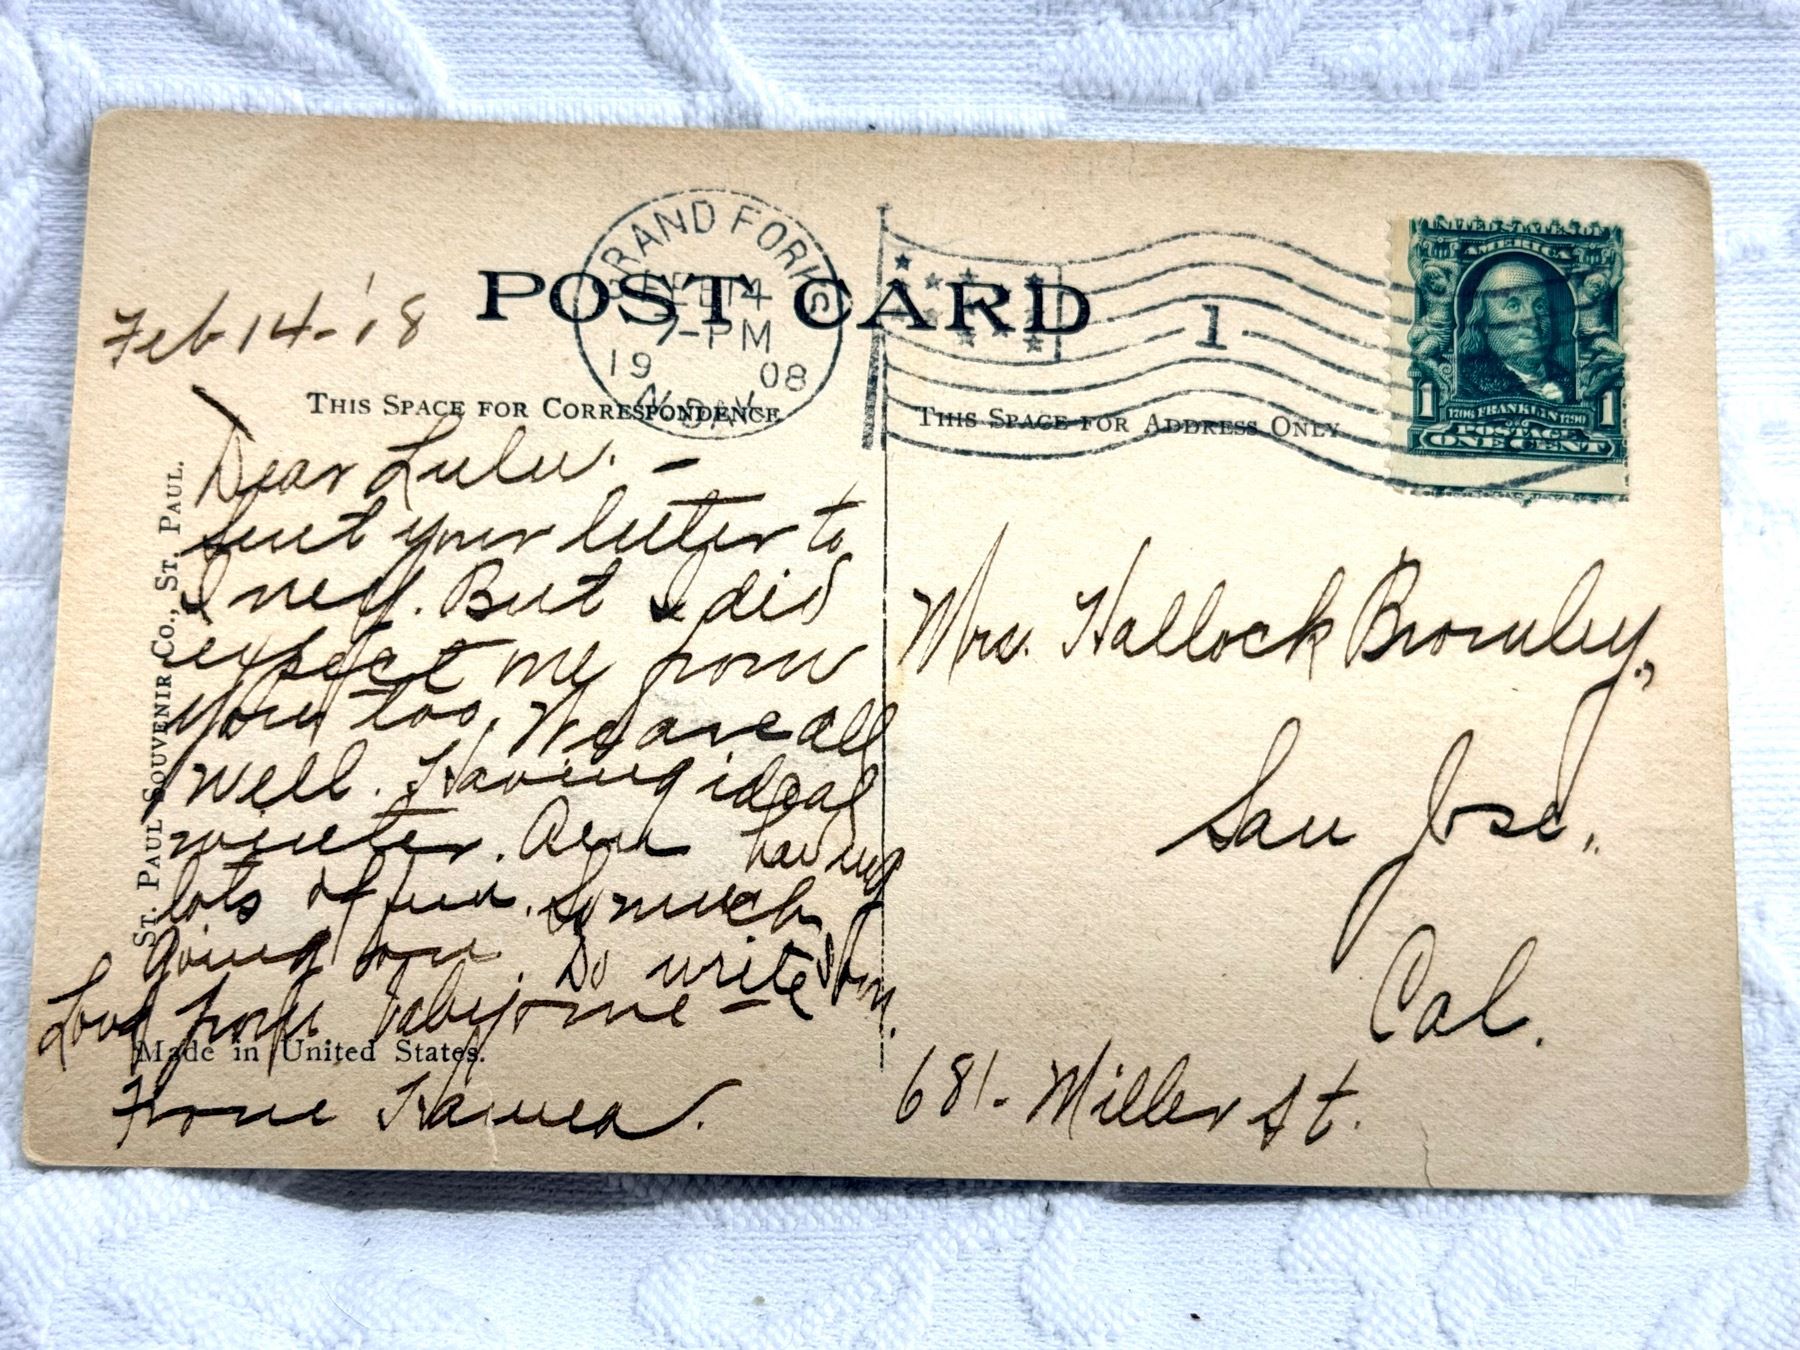 GRAND FORKS
FEB 14
7-PM
1908
N. DAK.
1
POST CARD
AMERICA
1706 FRANKLIN 1790
POSTAGE
1 ONE CENT 1
Feb 14-'18
THIS SPACE FOR CORRESPONDENCE
THIS SPACE FOR ADDRESS ONLY
Dear Lulu. -
Sent your letter to
But I did
expect me from
you too. We are all
well. Having ideal
winter. Am having
lots of fun. So much
going on. Do write
Love from baby & me -
From
ST. PAUL SOUVENIR CO., ST. PAUL.
Made in United States.
Mrs. Hallock Bromley,
San José,
Cal.
681- Miller St.